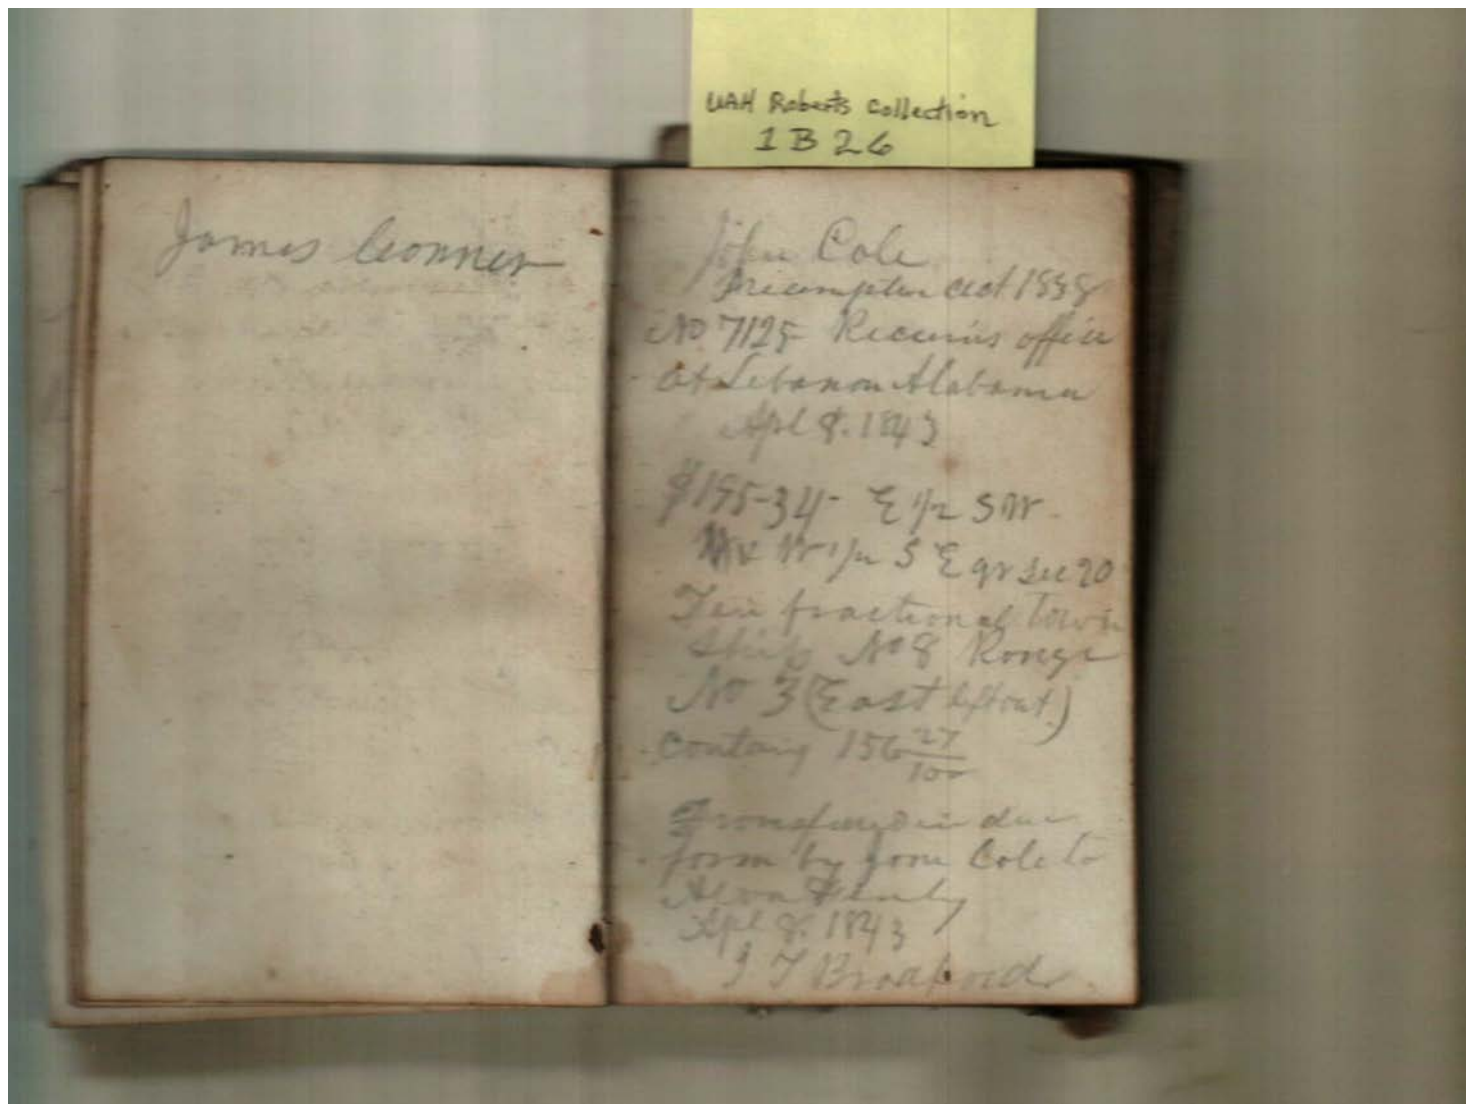 UAH Roberts Collection
1 B 26
James Conner
John Cole
Preemption act 1838
No 7125 Receivers office
at Lebanon Alabama
Apl 8. 1843
$195-34- E 1/2 SW
W 1/2 S E qr Sec 20
fractional Town
Ship No 8 Range
No 3 (East)
containg 156 27/100
in due
form by Cole to
Apl 8. 1843
J T Bradford